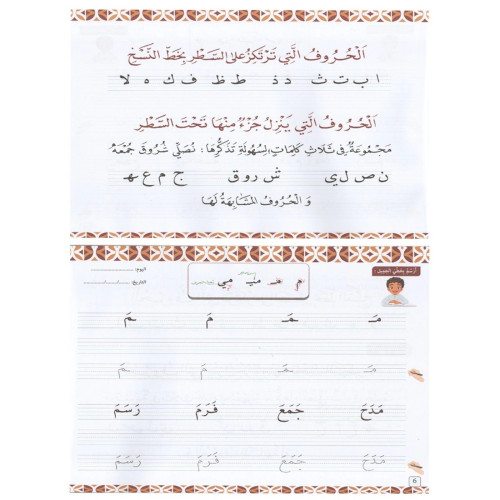 اَلْحُرُوفُ الَّتِي تَرْتَكِزُ عَلَى السَّطْرِ بِخَطِّ النَّسْخِ
ا ب ت ث د ذ ط ظ ف ك ه لا
اَلْحُرُوفُ الَّتِي يَنْزِلُ جُزْءٌ مِنْهَا تَحْتَ السَّطْرِ
مَجْمُوعَةٌ فِي ثَلَاثِ كَلِمَاتٍ لِسُهُولَةِ تَذَكُّرِهَا: نُصَلِّي شُرُوقَ جُمْعَه
ن ص ل ي ش ر و ق ج م ع ه
وَ الْحُرُوفُ الْمُشَابِهَةُ لَهَا
أرسم بخطي الجميل:
اليوم:
التاريخ:
م مـ ـمـ ـم
مَـ ـمَـ مَ ـمَ
مَـ ـمَـ مَ ـمَ
مَدَحَ جَمَعَ فَرَمَ رَسَمَ
مَدَحَ جَمَعَ فَرَمَ رَسَمَ
6